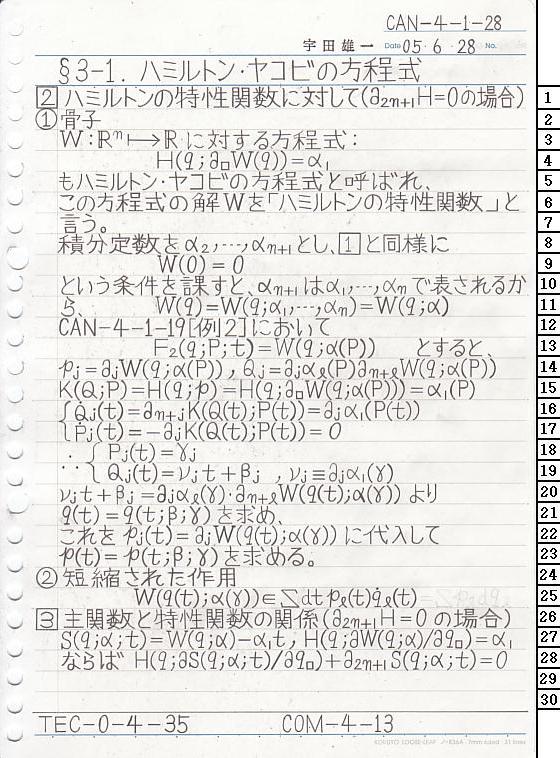 CAN-4-1-28
宇田雄一 Date 05・6・28 No.
§3-1. ハミルトン・ヤコビの方程式
2 ハミルトンの特性関数に対して(∂₂ₙ₊₁H=0の場合)
① 骨子
W:Rⁿ↦R に対する方程式:
H(q;∂□W(q))=α₁
もハミルトン・ヤコビの方程式と呼ばれ、
この方程式の解Wを「ハミルトンの特性関数」と
言う。
積分定数をα₂,…,αₙ₊₁とし、1と同様に
W(0)=0
という条件を課すと、αₙ₊₁はα₁,…,αₙで表されるか
ら、 W(q)=W(q;α₁,…,αₙ)=W(q;α)
CAN-4-1-19[例2]において
F₂(q;P;t)=W(q;α(P)) とすると、
pⱼ=∂ⱼW(q;α(P)), Qⱼ=∂ⱼαℓ(P)∂ₙ₊ℓW(q;α(P))
K(Q;P)=H(q;p)=H(q;∂□W(q;α(P)))=α₁(P)
{Q̇ⱼ(t)=∂ₙ₊ⱼK(Q(t);P(t))=∂ⱼα₁(P(t))
Ṗⱼ(t)=-∂ⱼK(Q(t);P(t))=0
∴{Pⱼ(t)=γⱼ
Qⱼ(t)=νⱼt+βⱼ , νⱼ≡∂ⱼα₁(γ)
νⱼt+βⱼ=∂ⱼαℓ(γ)・∂ₙ₊ℓW(q(t);α(γ)) より
q(t)=q(t;β;γ)を求め、
これを pⱼ(t)=∂ⱼW(q(t);α(γ)) に代入して
p(t)=p(t;β;γ)を求める。
② 短縮された作用
W(q(t);α(γ))∈∑∫dt pℓ(t)q̇ℓ(t)
3 主関数と特性関数の関係(∂₂ₙ₊₁H=0の場合)
S(q;α;t)=W(q;α)-α₁t, H(q;∂W(q;α)/∂q□)=α₁
ならば H(q;∂S(q;α;t)/∂q□)+∂₂ₙ₊₁S(q;α;t)=0
TEC-0-4-35 COM-4-13
KOKUYO LOOSE-LEAF ノ-836A 7mm ruled 31 lines
1
2
3
4
5
6
7
8
9
10
11
12
13
14
15
16
17
18
19
20
21
22
23
24
25
26
27
28
29
30